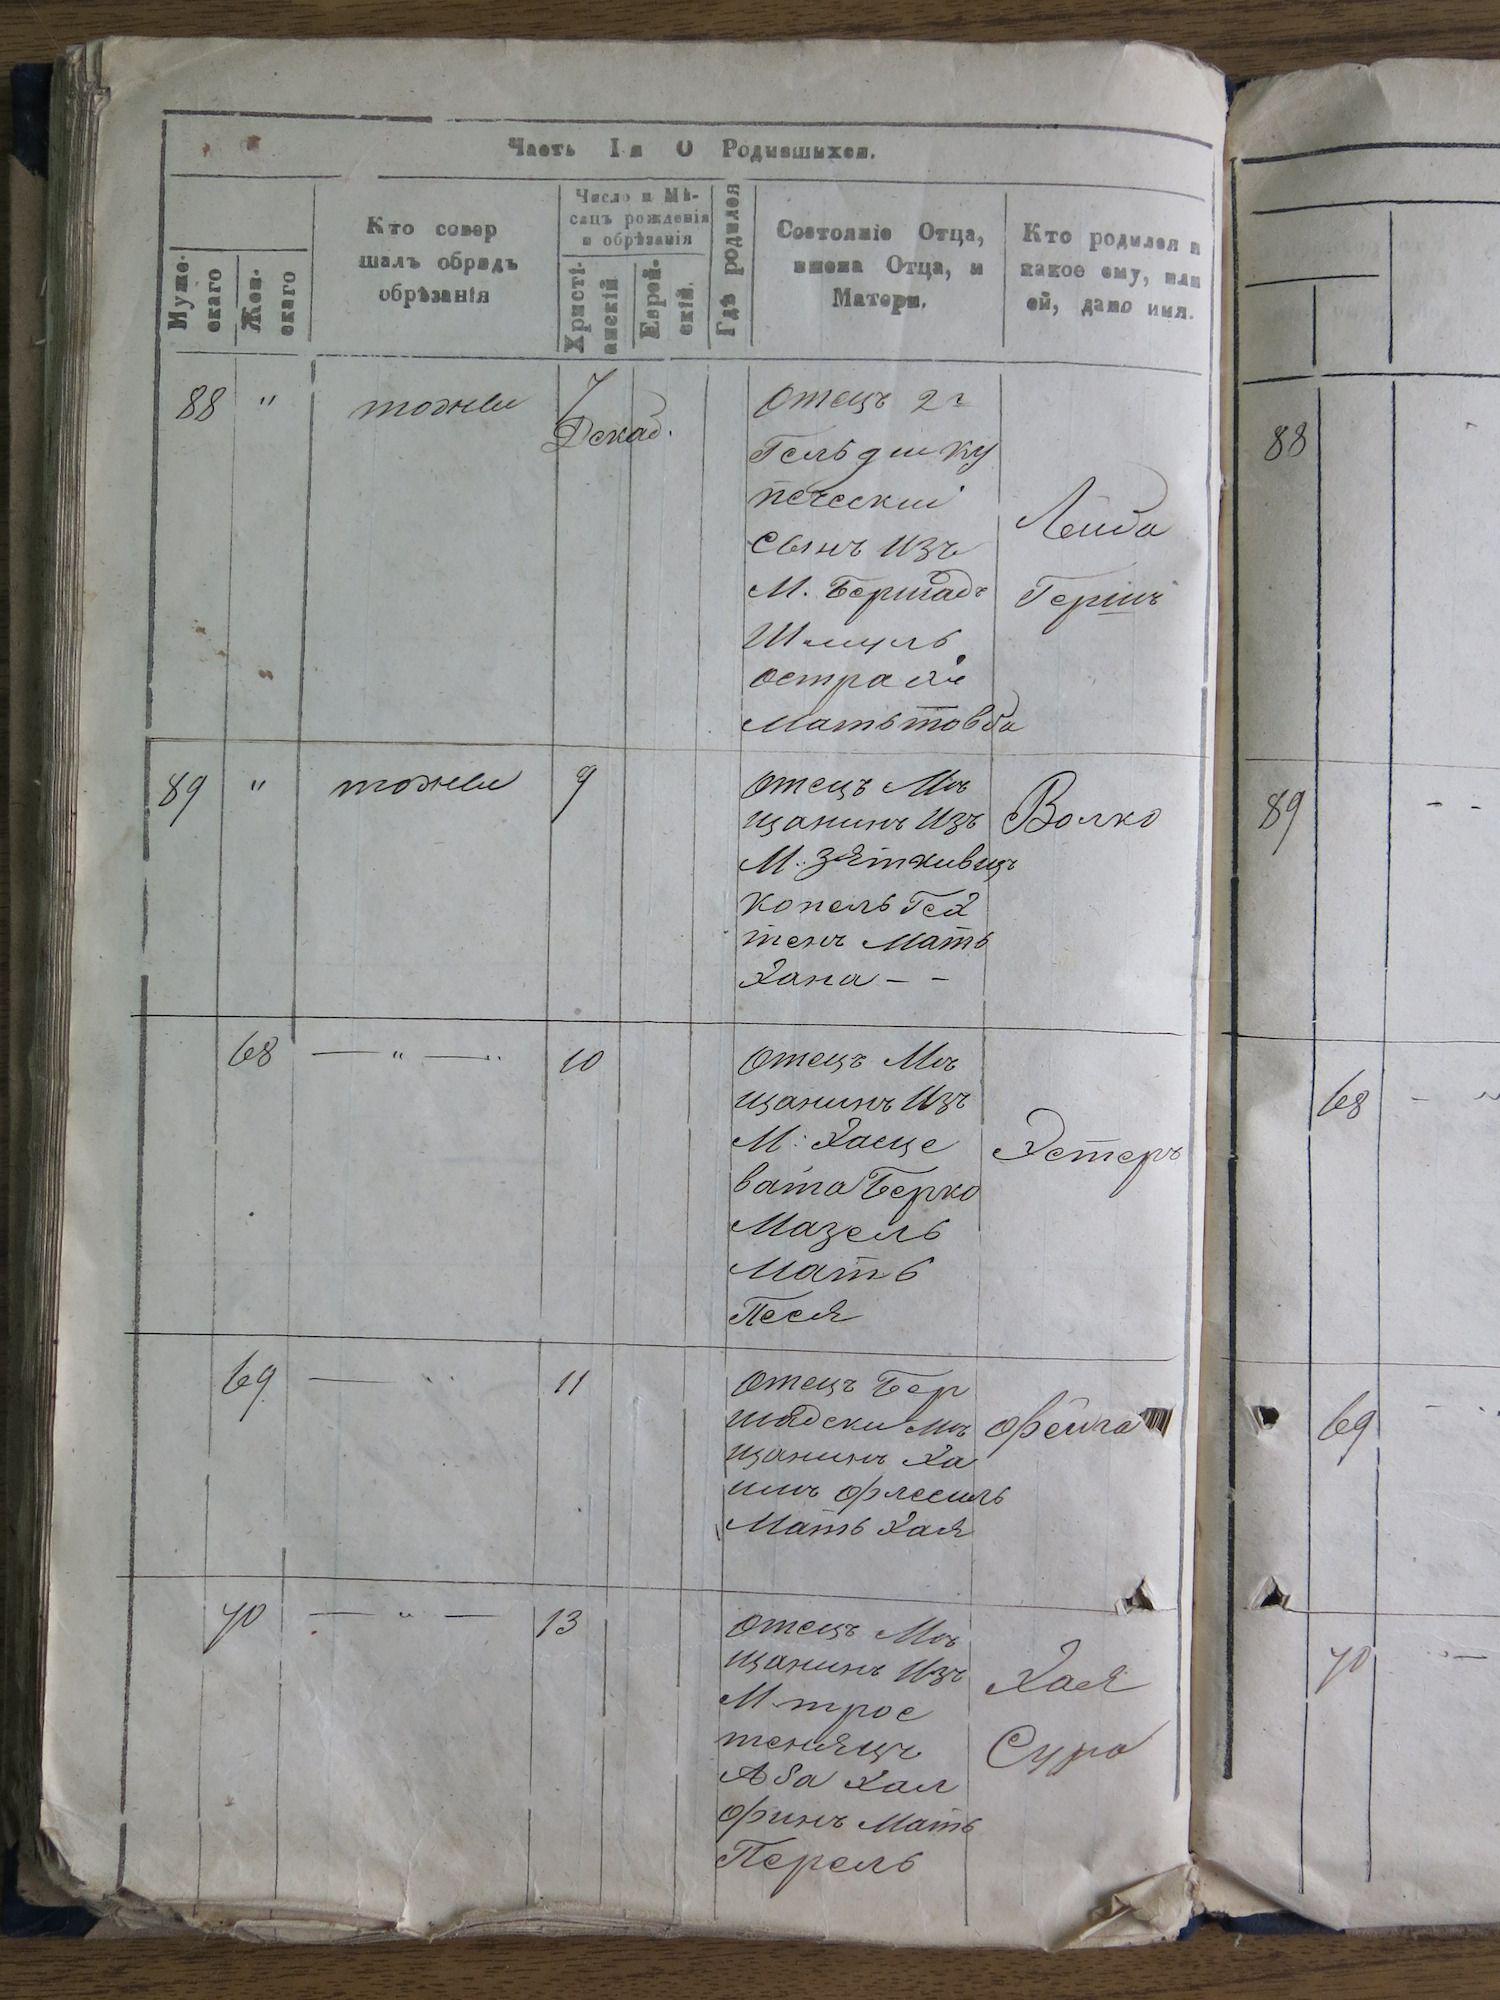 Часть I я О Родившихся.
Мужескаго
Женскаго
Кто совер
шалъ обрядъ
обрѣзанія
Число и Мѣ-
сацъ рожденія
и обрѣзанія
Христі-
анскій
Еврей-
скій.
Гдѣ родился
Состояніе Отца,
имена Отца, и
Матери.
Кто родился и
какое ему, или
ей, дано имя.
88 " тожъе 7
Декаб.
Отецъ 2 г
Гельдии ку
печеский
сынъ изъ
М. Бершадъ
Шмуль
Мать Товба
Лейба
Гершъ
89 " тожъе 9
Отецъ Мѣ
щанинъ изъ
М. Зятковцъ
Копель Гех
тенъ Мать
Хана - -
Волко
68 — " — " 10
Отецъ Мѣ
щанинъ изъ
М: Хаще
вата Берко
Мазель
Мать
Песя
Эстеръ
69 — " 11
Отецъ Бер
шадски мѣ
щанинъ Ха
имъ
Мать Хая
Фейга
70 — " — 13
Отецъ Мѣ
щанинъ изъ
М трос
теняцъ
Аба Хал
финъ Мать
Перель
Хая
Сура
88
89 - -
68 - "
69 -
70 " —